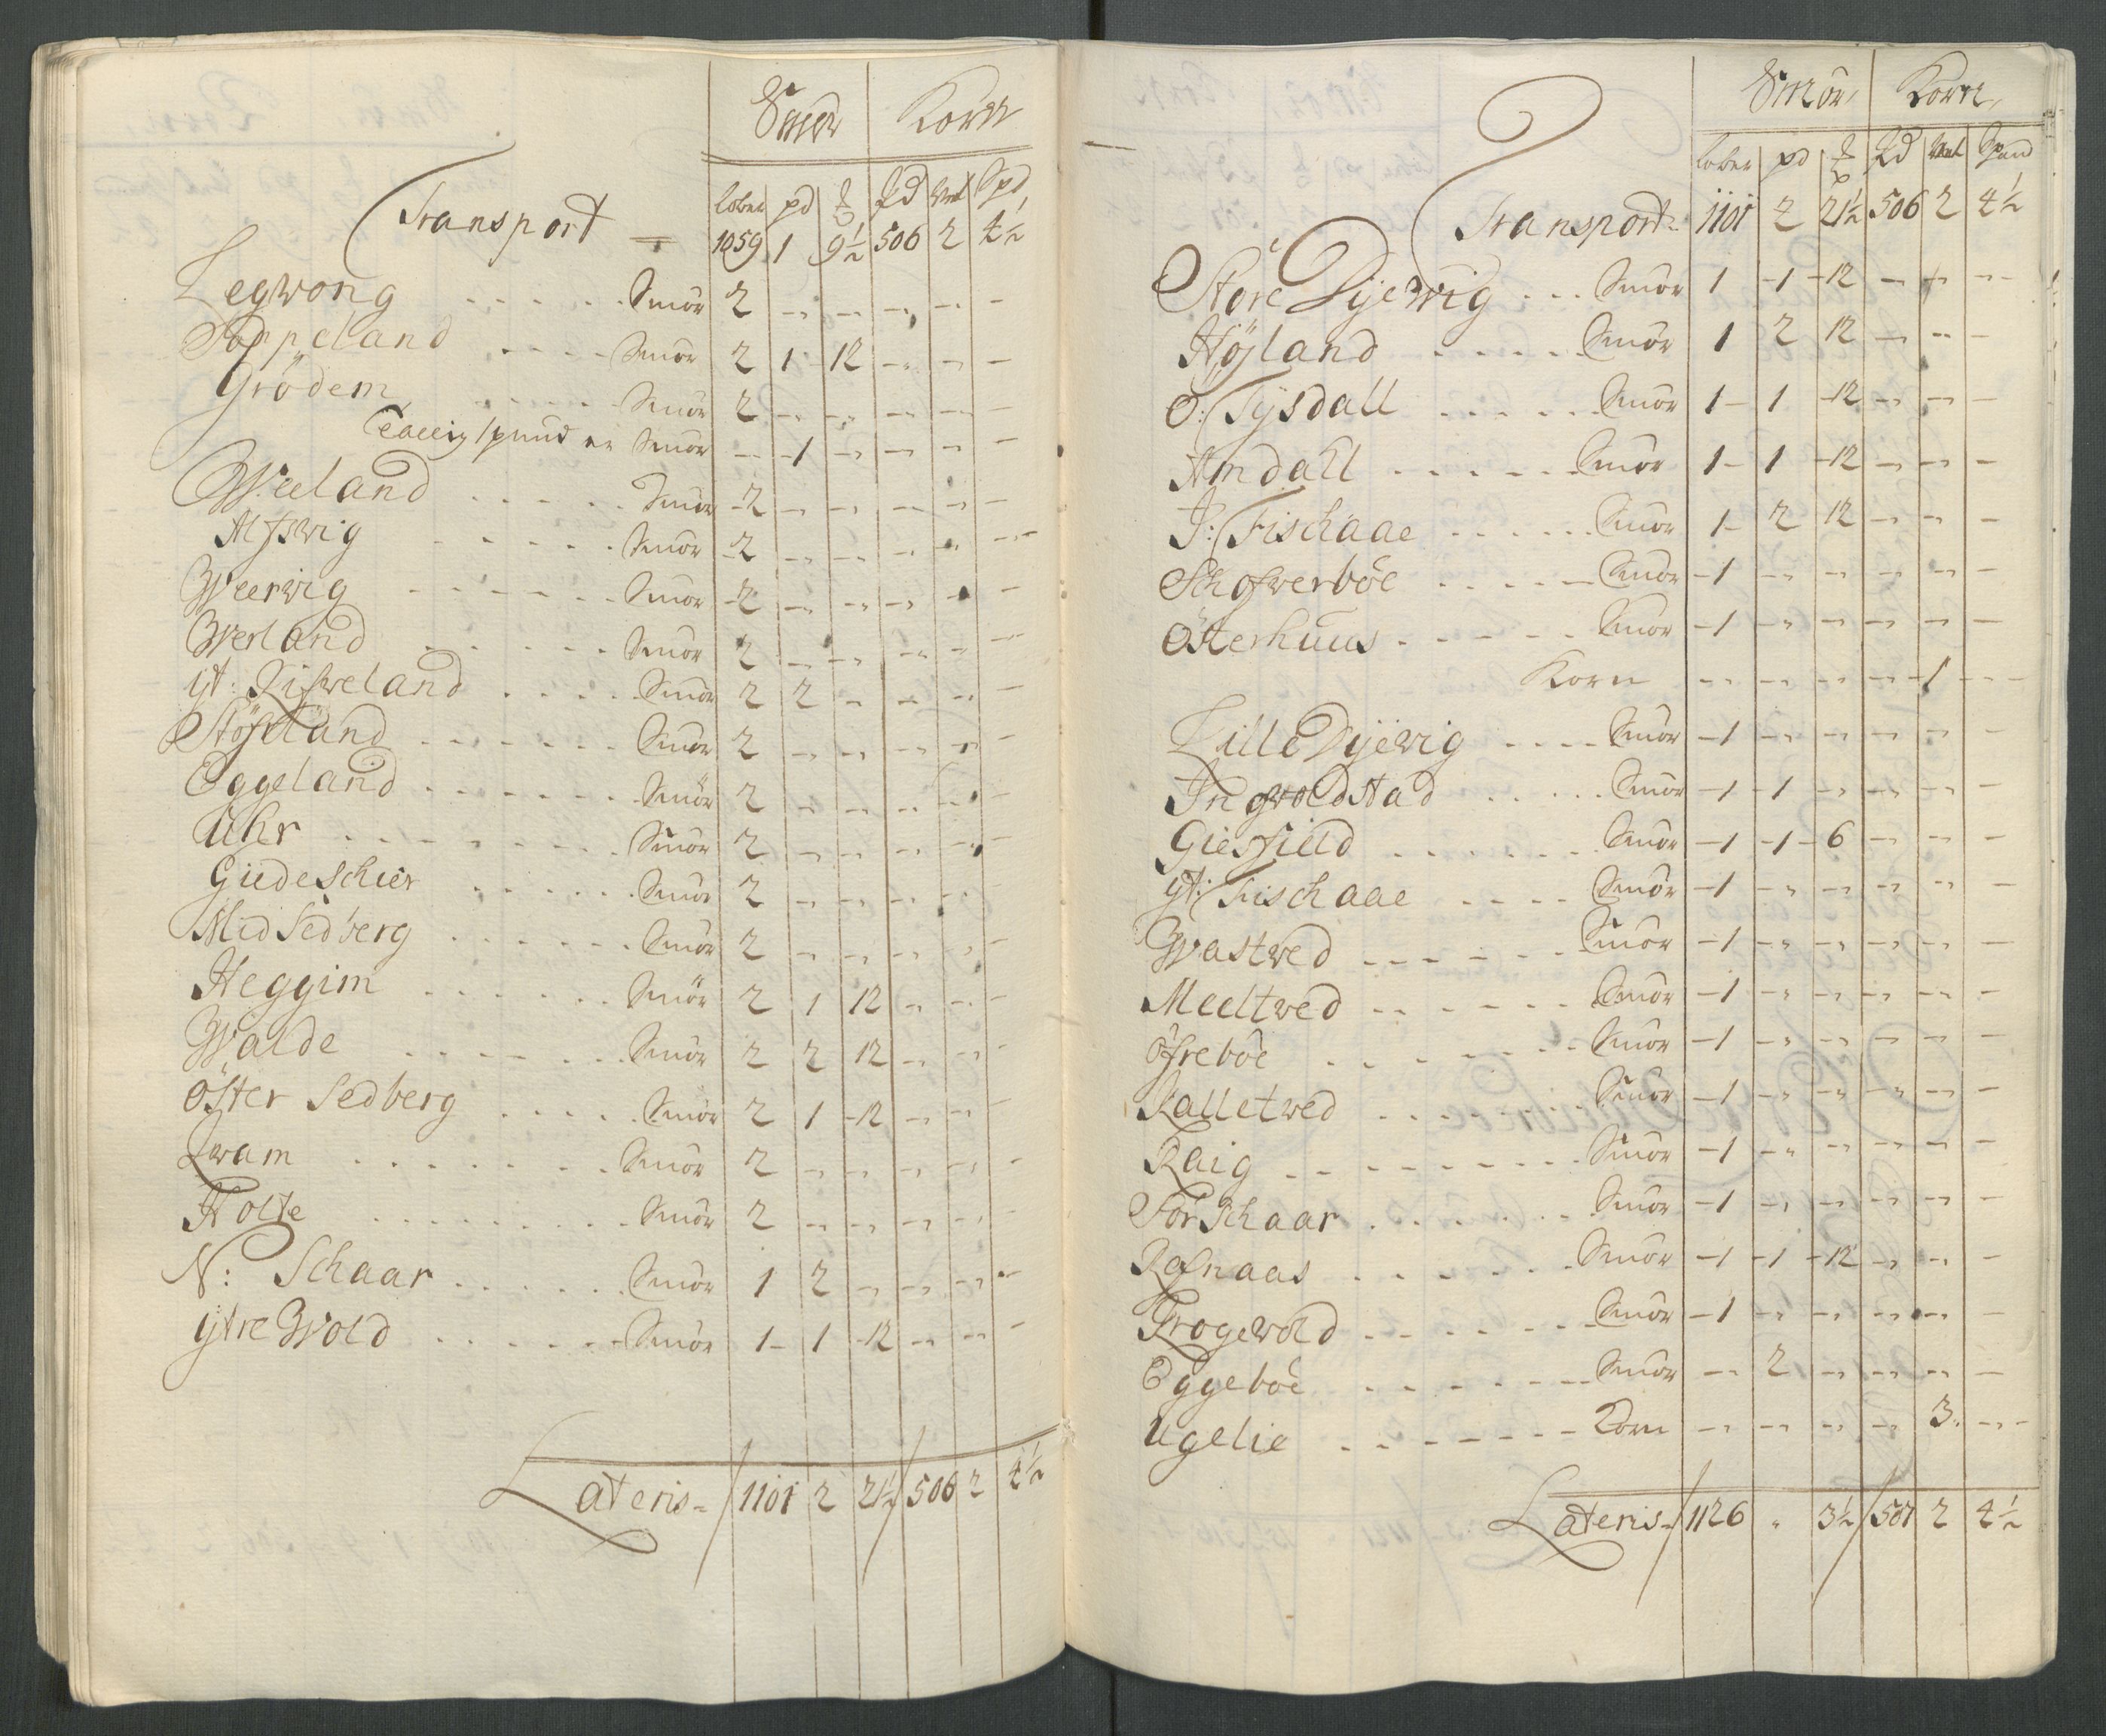 Smör Korn
löber pd ℔ Pd Vel Spd,
Transport = 1059 1 9½ 506 2 4½
Legvong - - - - - - Smör 2 - - - - -
Soppeland - - - - Smör 2 1 12 - - -
Grödem - - - - - Smör 2 - - - - -
Smör - 1 - - - -
Weeland - - - - - Smör 2 - - - - -
Alfsvig - - - - - Smör 2 - - - - -
Weervig - - - - - - Smör 2 - - - - -
Werland - - - - - - Smör 2 - - - - -
yt: Lifweland - - - - Smör 2 2 - - - -
Stöfeland - - - - - - Smör 2 - - - - -
Eggeland - - - - - - Smör 2 - - - - -
Uhr - - - - - - - - Smör 2 - - - - -
Giedeschier - - - - - Smör 2 - - - - -
Mid Sedberg - - - - - - Smör 2 - - - - -
Heggim - - - - - - Smör 2 1 12 - - -
Walde - - - - - - Smör 2 2 12 - - -
Öster Sedberg - - - - Smör 2 1 12 - - -
Qvam - - - - - - - Smör 2 - - - - -
Holte - - - - - - - - Smör 2 - - - - -
N: Schaar - - - - - - Smör 1 2 - - - -
ytre Wold - - - - - - Smör 1 1 12 - - -
Lateris = 1101 2 21½ 506 2 4½
Smör, Korn,
lober pd ℔ Pd Vel Spand
Transport = 1101 2 21½ 506 2 4½
Store Dyevig - - - Smör 1 1 12 - - -
Höyland - - - - - Smör 1 2 12 - - -
O: Tysdall - - - - - Smör 1 1 12 - - -
Amdall - - - - - - Smör 1 1 12 - - -
I: Fischaae - - - - - Smör 1 2 12 - - -
Schofverböe - - - - - Smör 1 - - - - -
Österhuus - - - - - - Smör 1 - - - - -
Korn - - - - 1 -
Lille Dyevig - - - - Smör 1 - - - - -
Ingvoldstad - - - - - Smör 1 1 - - - -
Giesfield - - - - - - Smör 1 1 6 - - -
yt: Fischaae - - - - Smör 1 - - - - -
Wastved - - - - - - Smör 1 - - - - -
Meeltved - - - - - - Smör 1 - - - - -
Öfreböe - - - - - - - Smör 1 - - - - -
Kalletved - - - - - - Smör 1 - - - - -
Raig - - - - - - - - Smör 1 - - - - -
Forschaar - - - - - - Smör 1 - - - - -
Rafnaas - - - - - - Smör 1 1 12 - - -
Krogevold - - - - - - Smör 1 - - - - -
Eggeböe - - - - - - - Smör - 2 - - - -
Ugelie - - - - - - - Korn - - - - 3 -
Lateris = 1126 " 3½ 507 2 4½